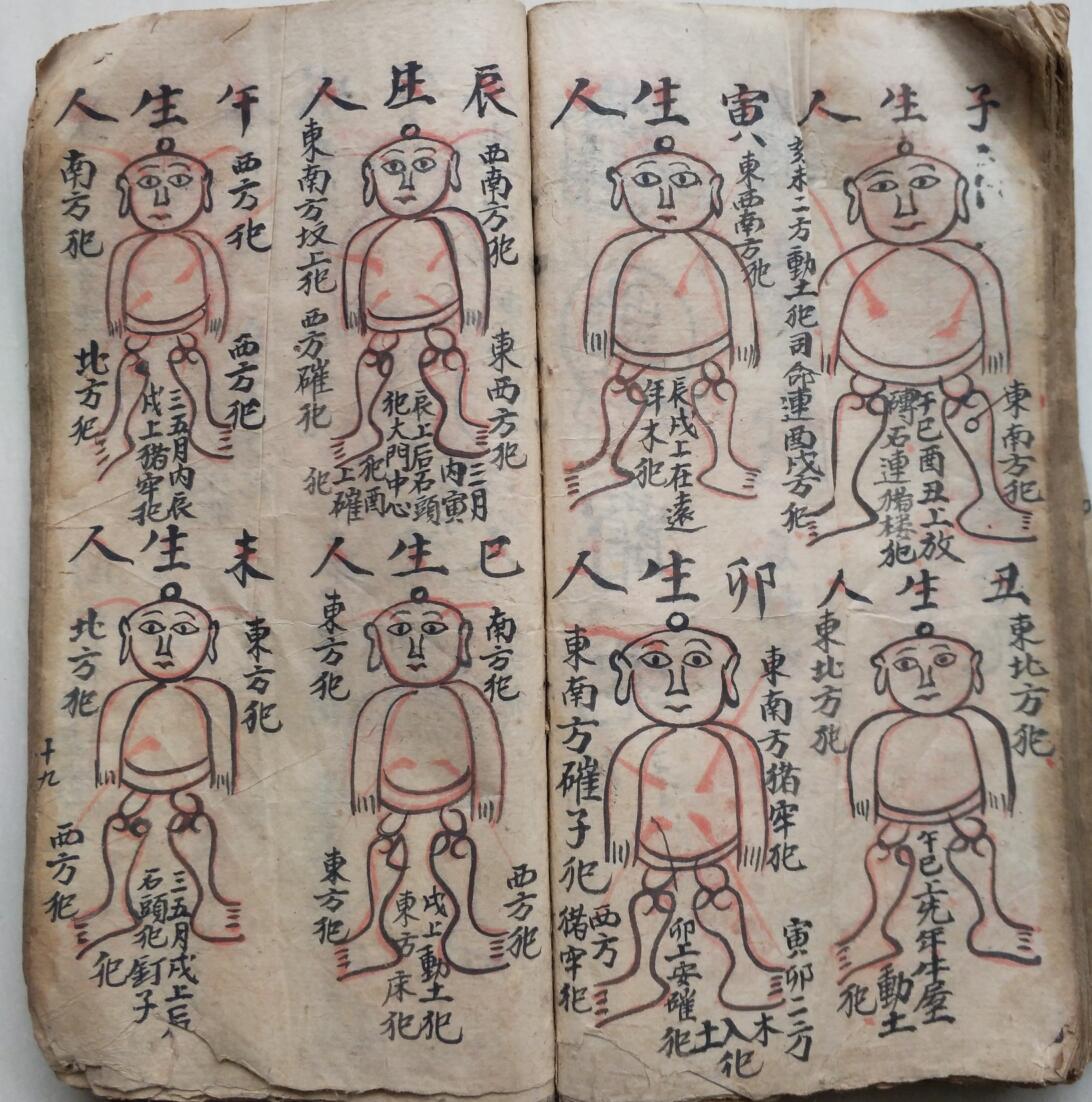 子生人
東南方犯
午巳酉丑上放
磚石連猪楼犯
亥未二方動土犯司命連酉戌方犯
丑生人
東北方犯
東北方犯
午巳上先年生屋
動土
犯
寅生人
東西南方犯
辰戌上在遠
年木犯
卯生人
東南方猪牢犯
寅卯二三方
木入土犯
卯上安碓
犯
東南方碓子犯
西方
猪牢犯
辰生人
西南方犯
東西方犯
三月
内寅
辰上后石頭
犯大門中心
犯酉
上碓
犯
東南方坟上犯
西方碓犯
巳生人
南方犯
西方犯
戌上動土犯
東方床犯
東方犯
東方犯
午生人
西方犯
西方犯
三五月内辰
戌上猪牢犯
南方犯
北方犯
未生人
東方犯
三五月戌上后
石頭犯釘子
犯
北方犯
西方犯
十九